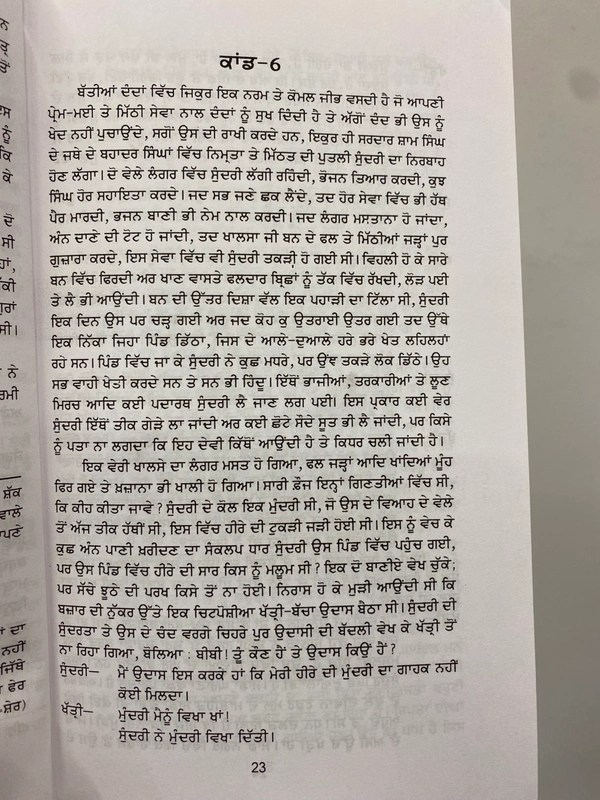 ਕਾਂਡ-6
ਬੱਤੀਆਂ ਦੰਦਾਂ ਵਿੱਚ ਜਿਕੁਰ ਇਕ ਨਰਮ ਤੇ ਕੋਮਲ ਜੀਭ ਵਸਦੀ ਹੈ ਜੋ ਆਪਣੀ
ਪ੍ਰੇਮ-ਮਈ ਤੇ ਮਿੱਠੀ ਸੇਵਾ ਨਾਲ ਦੰਦਾਂ ਨੂੰ ਸੁਖ ਦਿੰਦੀ ਹੈ ਤੇ ਅੱਗੋਂ ਦੰਦ ਭੀ ਉਸ ਨੂੰ
ਖੇਦ ਨਹੀਂ ਪੁਚਾਉਂਦੇ, ਸਗੋਂ ਉਸ ਦੀ ਰਾਖੀ ਕਰਦੇ ਹਨ, ਇਕੁਰ ਹੀ ਸਰਦਾਰ ਸ਼ਾਮ ਸਿੰਘ
ਦੇ ਜਥੇ ਦੇ ਬਹਾਦਰ ਸਿੰਘਾਂ ਵਿੱਚ ਨਿਮ੍ਰਤਾ ਤੇ ਮਿੱਠਤ ਦੀ ਪੁਤਲੀ ਸੁੰਦਰੀ ਦਾ ਨਿਰਬਾਹ
ਹੋਣ ਲੱਗਾ। ਦੋ ਵੇਲੇ ਲੰਗਰ ਵਿੱਚ ਸੁੰਦਰੀ ਲੱਗੀ ਰਹਿੰਦੀ, ਭੋਜਨ ਤਿਆਰ ਕਰਦੀ, ਕੁਝ
ਸਿੰਘ ਹੋਰ ਸਹਾਇਤਾ ਕਰਦੇ। ਜਦ ਸਭ ਜਣੇ ਛਕ ਲੈਂਦੇ, ਤਦ ਹੋਰ ਸੇਵਾ ਵਿੱਚ ਭੀ ਹੱਥ
ਪੈਰ ਮਾਰਦੀ, ਭਜਨ ਬਾਣੀ ਭੀ ਨੇਮ ਨਾਲ ਕਰਦੀ। ਜਦ ਲੰਗਰ ਮਸਤਾਨਾ ਹੋ ਜਾਂਦਾ,
ਅੰਨ ਦਾਣੇ ਦੀ ਟੋਟ ਹੋ ਜਾਂਦੀ, ਤਦ ਖਾਲਸਾ ਜੀ ਬਨ ਦੇ ਫਲ ਤੇ ਮਿੱਠੀਆਂ ਜੜ੍ਹਾਂ ਪੁਰ
ਗੁਜ਼ਾਰਾ ਕਰਦੇ, ਇਸ ਸੇਵਾ ਵਿੱਚ ਵੀ ਸੁੰਦਰੀ ਤਕੜੀ ਹੋ ਗਈ ਸੀ। ਵਿਹਲੀ ਹੋ ਕੇ ਸਾਰੇ
ਬਨ ਵਿੱਚ ਫਿਰਦੀ ਅਰ ਖਾਣ ਵਾਸਤੇ ਫਲਦਾਰ ਬ੍ਰਿਛਾਂ ਨੂੰ ਤੱਕ ਵਿੱਚ ਰੱਖਦੀ, ਲੋੜ ਪਈ
ਤੇ ਲੈ ਭੀ ਆਉਂਦੀ। ਬਨ ਦੀ ਉੱਤਰ ਦਿਸ਼ਾ ਵੱਲ ਇਕ ਪਹਾੜੀ ਦਾ ਟਿੱਲਾ ਸੀ, ਸੁੰਦਰੀ
ਇਕ ਦਿਨ ਉਸ ਪਰ ਚੜ੍ਹ ਗਈ ਅਰ ਜਦ ਕੋਹ ਕੁ ਉਤਰਾਈ ਉਤਰ ਗਈ ਤਦ ਉੱਥੇ
ਇਕ ਨਿੱਕਾ ਜਿਹਾ ਪਿੰਡ ਡਿੱਠਾ, ਜਿਸ ਦੇ ਆਲੇ-ਦੁਆਲੇ ਹਰੇ ਭਰੇ ਖੇਤ ਲਹਿਲਹਾ
ਰਹੇ ਸਨ। ਪਿੰਡ ਵਿੱਚ ਜਾ ਕੇ ਸੁੰਦਰੀ ਨੇ ਕੁਛ ਮਧਰੇ, ਪਰ ਉਞ ਤਕੜੇ ਲੋਕ ਡਿੱਠੇ। ਉਹ
ਸਭ ਵਾਹੀ ਖੇਤੀ ਕਰਦੇ ਸਨ ਤੇ ਸਨ ਭੀ ਹਿੰਦੂ। ਇੱਥੋਂ ਭਾਜੀਆਂ, ਤਰਕਾਰੀਆਂ ਤੇ ਲੂਣ
ਮਿਰਚ ਆਦਿ ਕਈ ਪਦਾਰਥ ਸੁੰਦਰੀ ਲੈ ਜਾਣ ਲਗ ਪਈ। ਇਸ ਪ੍ਰਕਾਰ ਕਈ ਵੇਰ
ਸੁੰਦਰੀ ਇੱਥੋਂ ਤੀਕ ਗੇੜੇ ਲਾ ਜਾਂਦੀ ਅਰ ਕਈ ਛੋਟੇ ਸੌਦੇ ਸੂਤ ਭੀ ਲੈ ਜਾਂਦੀ, ਪਰ ਕਿਸੇ
ਨੂੰ ਪਤਾ ਨਾ ਲਗਦਾ ਕਿ ਇਹ ਦੇਵੀ ਕਿੱਥੋਂ ਆਉਂਦੀ ਹੈ ਤੇ ਕਿਧਰ ਚਲੀ ਜਾਂਦੀ ਹੈ।
ਇਕ ਵੇਰੀ ਖਾਲਸੇ ਦਾ ਲੰਗਰ ਮਸਤ ਹੋ ਗਿਆ, ਫਲ ਜੜ੍ਹਾਂ ਆਦਿ ਖਾਂਦਿਆਂ ਮੂੰਹ
ਫਿਰ ਗਏ ਤੇ ਖ਼ਜ਼ਾਨਾ ਭੀ ਖਾਲੀ ਹੋ ਗਿਆ। ਸਾਰੀ ਫ਼ੌਜ ਇਨ੍ਹਾਂ ਗਿਣਤੀਆਂ ਵਿੱਚ ਸੀ,
ਕਿ ਕੀਹ ਕੀਤਾ ਜਾਵੇ ? ਸੁੰਦਰੀ ਦੇ ਕੋਲ ਇਕ ਮੁੰਦਰੀ ਸੀ, ਜੋ ਉਸ ਦੇ ਵਿਆਹ ਦੇ ਵੇਲੇ
ਤੋਂ ਅੱਜ ਤੀਕ ਹੱਥੀਂ ਸੀ, ਇਸ ਵਿੱਚ ਹੀਰੇ ਦੀ ਟੁਕੜੀ ਜੜੀ ਹੋਈ ਸੀ। ਇਸ ਨੂੰ ਵੇਚ ਕੇ
ਕੁਛ ਅੰਨ ਪਾਣੀ ਖ਼ਰੀਦਣ ਦਾ ਸੰਕਲਪ ਧਾਰ ਸੁੰਦਰੀ ਉਸ ਪਿੰਡ ਵਿੱਚ ਪਹੁੰਚ ਗਈ,
ਪਰ ਉਸ ਪਿੰਡ ਵਿੱਚ ਹੀਰੇ ਦੀ ਸਾਰ ਕਿਸ ਨੂੰ ਮਲੂਮ ਸੀ ? ਇਕ ਦੋ ਬਾਣੀਏ ਵੇਖ ਚੁੱਕੇ;
ਪਰ ਸੱਚੇ ਝੂਠੇ ਦੀ ਪਰਖ ਕਿਸੇ ਤੋਂ ਨਾ ਹੋਈ। ਨਿਰਾਸ ਹੋ ਕੇ ਮੁੜੀ ਆਉਂਦੀ ਸੀ ਕਿ
ਬਜ਼ਾਰ ਦੀ ਨੁੱਕਰ ਉੱਤੇ ਇਕ ਚਿਟਪੋਸ਼ੀਆ ਖੱਤ੍ਰੀ-ਬੱਚਾ ਉਦਾਸ ਬੈਠਾ ਸੀ। ਸੁੰਦਰੀ ਦੀ
ਸੁੰਦਰਤਾ ਤੇ ਉਸ ਦੇ ਚੰਦ ਵਰਗੇ ਚਿਹਰੇ ਪੁਰ ਉਦਾਸੀ ਦੀ ਬੱਦਲੀ ਵੇਖ ਕੇ ਖੱਤ੍ਰੀ ਤੋਂ
ਨਾ ਰਿਹਾ ਗਿਆ, ਬੋਲਿਆ : ਬੀਬੀ! ਤੂੰ ਕੌਣ ਹੈਂ ਤੇ ਉਦਾਸ ਕਿਉਂ ਹੈਂ ?
ਸੁੰਦਰੀ— ਮੈਂ ਉਦਾਸ ਇਸ ਕਰਕੇ ਹਾਂ ਕਿ ਮੇਰੀ ਹੀਰੇ ਦੀ ਮੁੰਦਰੀ ਦਾ ਗਾਹਕ ਨਹੀਂ
ਕੋਈ ਮਿਲਦਾ।
ਖੱਤ੍ਰੀ— ਮੁੰਦਰੀ ਮੈਨੂੰ ਵਿਖਾ ਖਾਂ!
ਸੁੰਦਰੀ ਨੇ ਮੁੰਦਰੀ ਵਿਖਾ ਦਿੱਤੀ।
23